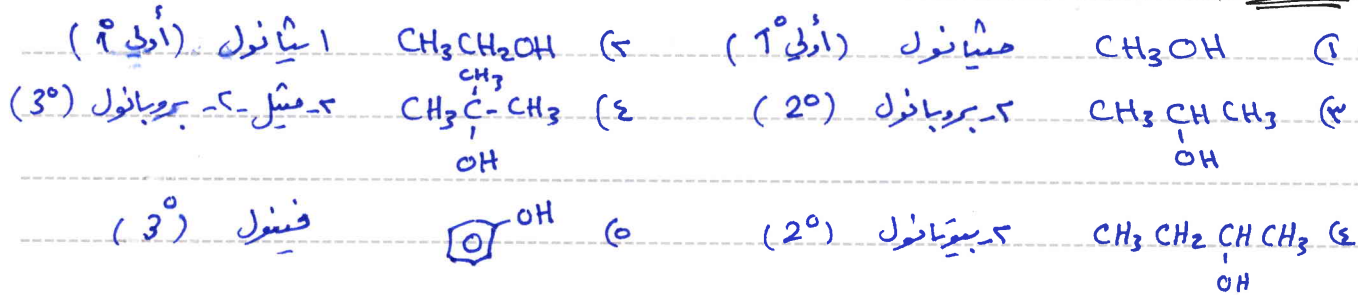 ١) CH3OH ميثانول (أولي 1°) ٢) CH3CH2OH ايثانول (أولي 1°)
٣) CH3CHCH3 ٢-بروبانول (2°) ٤) CH3C-CH3 ٢-مثيل-٢-بروبانول (3°)
OH CH3 OH
٤) CH3CH2CHCH3 ٢-بيوتانول (2°) ٥) OH فينول (3°)
OH